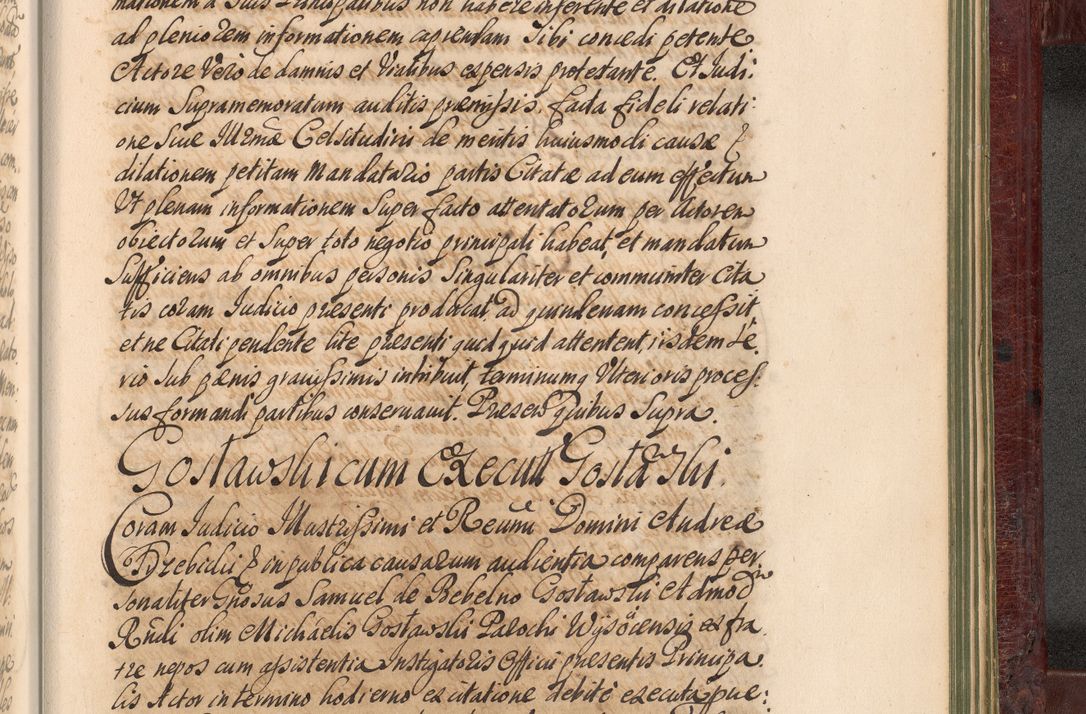 mationem a suis Principalibus non habere inferente et dilatione
ad pleniorem informationem capiendam sibi concedi petente
Actore vero de damnis et vialibus expensis protestante. Et Judi:
cium supramemoratum auditis præmissis, facta fideli relati:
one suæ Illrmæ Celsitudini de meritis huiusmodi causæ
dilationem petitam Mandatario partis Citatæ ad eum effectum
Vt plenam informationem super facto attentatorum per Actorem
obiectorum et super toto negotio principali habeat, et mandatum
sufficiens ab omnibus personis singulariter et communiter cita
tis coram Judicio præsenti producat ad quindenam concessit
et ne Citati pendente lite præsenti quidquid attentent, iisdem se
rio sub pænis grauissimis inhibuit, terminumq Vlterioris proces:
sus formandi partibus conseruauit. Præsent quibus supra.
Gosławski cum Execut Gosławski.
Coram Judicio Illustrissimi et Reumi Domini Andreæ
Trzebicki in publica causarum audientia comparens per
sonaliter Gnosus Samuel de Bebelno Gosławski Admod
Rndi olim Michaelis Gosławski Parochi Wysocensis ex fra
tre nepos cum assistentia Instigatoris Officii præsentis Principa
lis Actor in termino hodierno ex citatione debite executa prue: